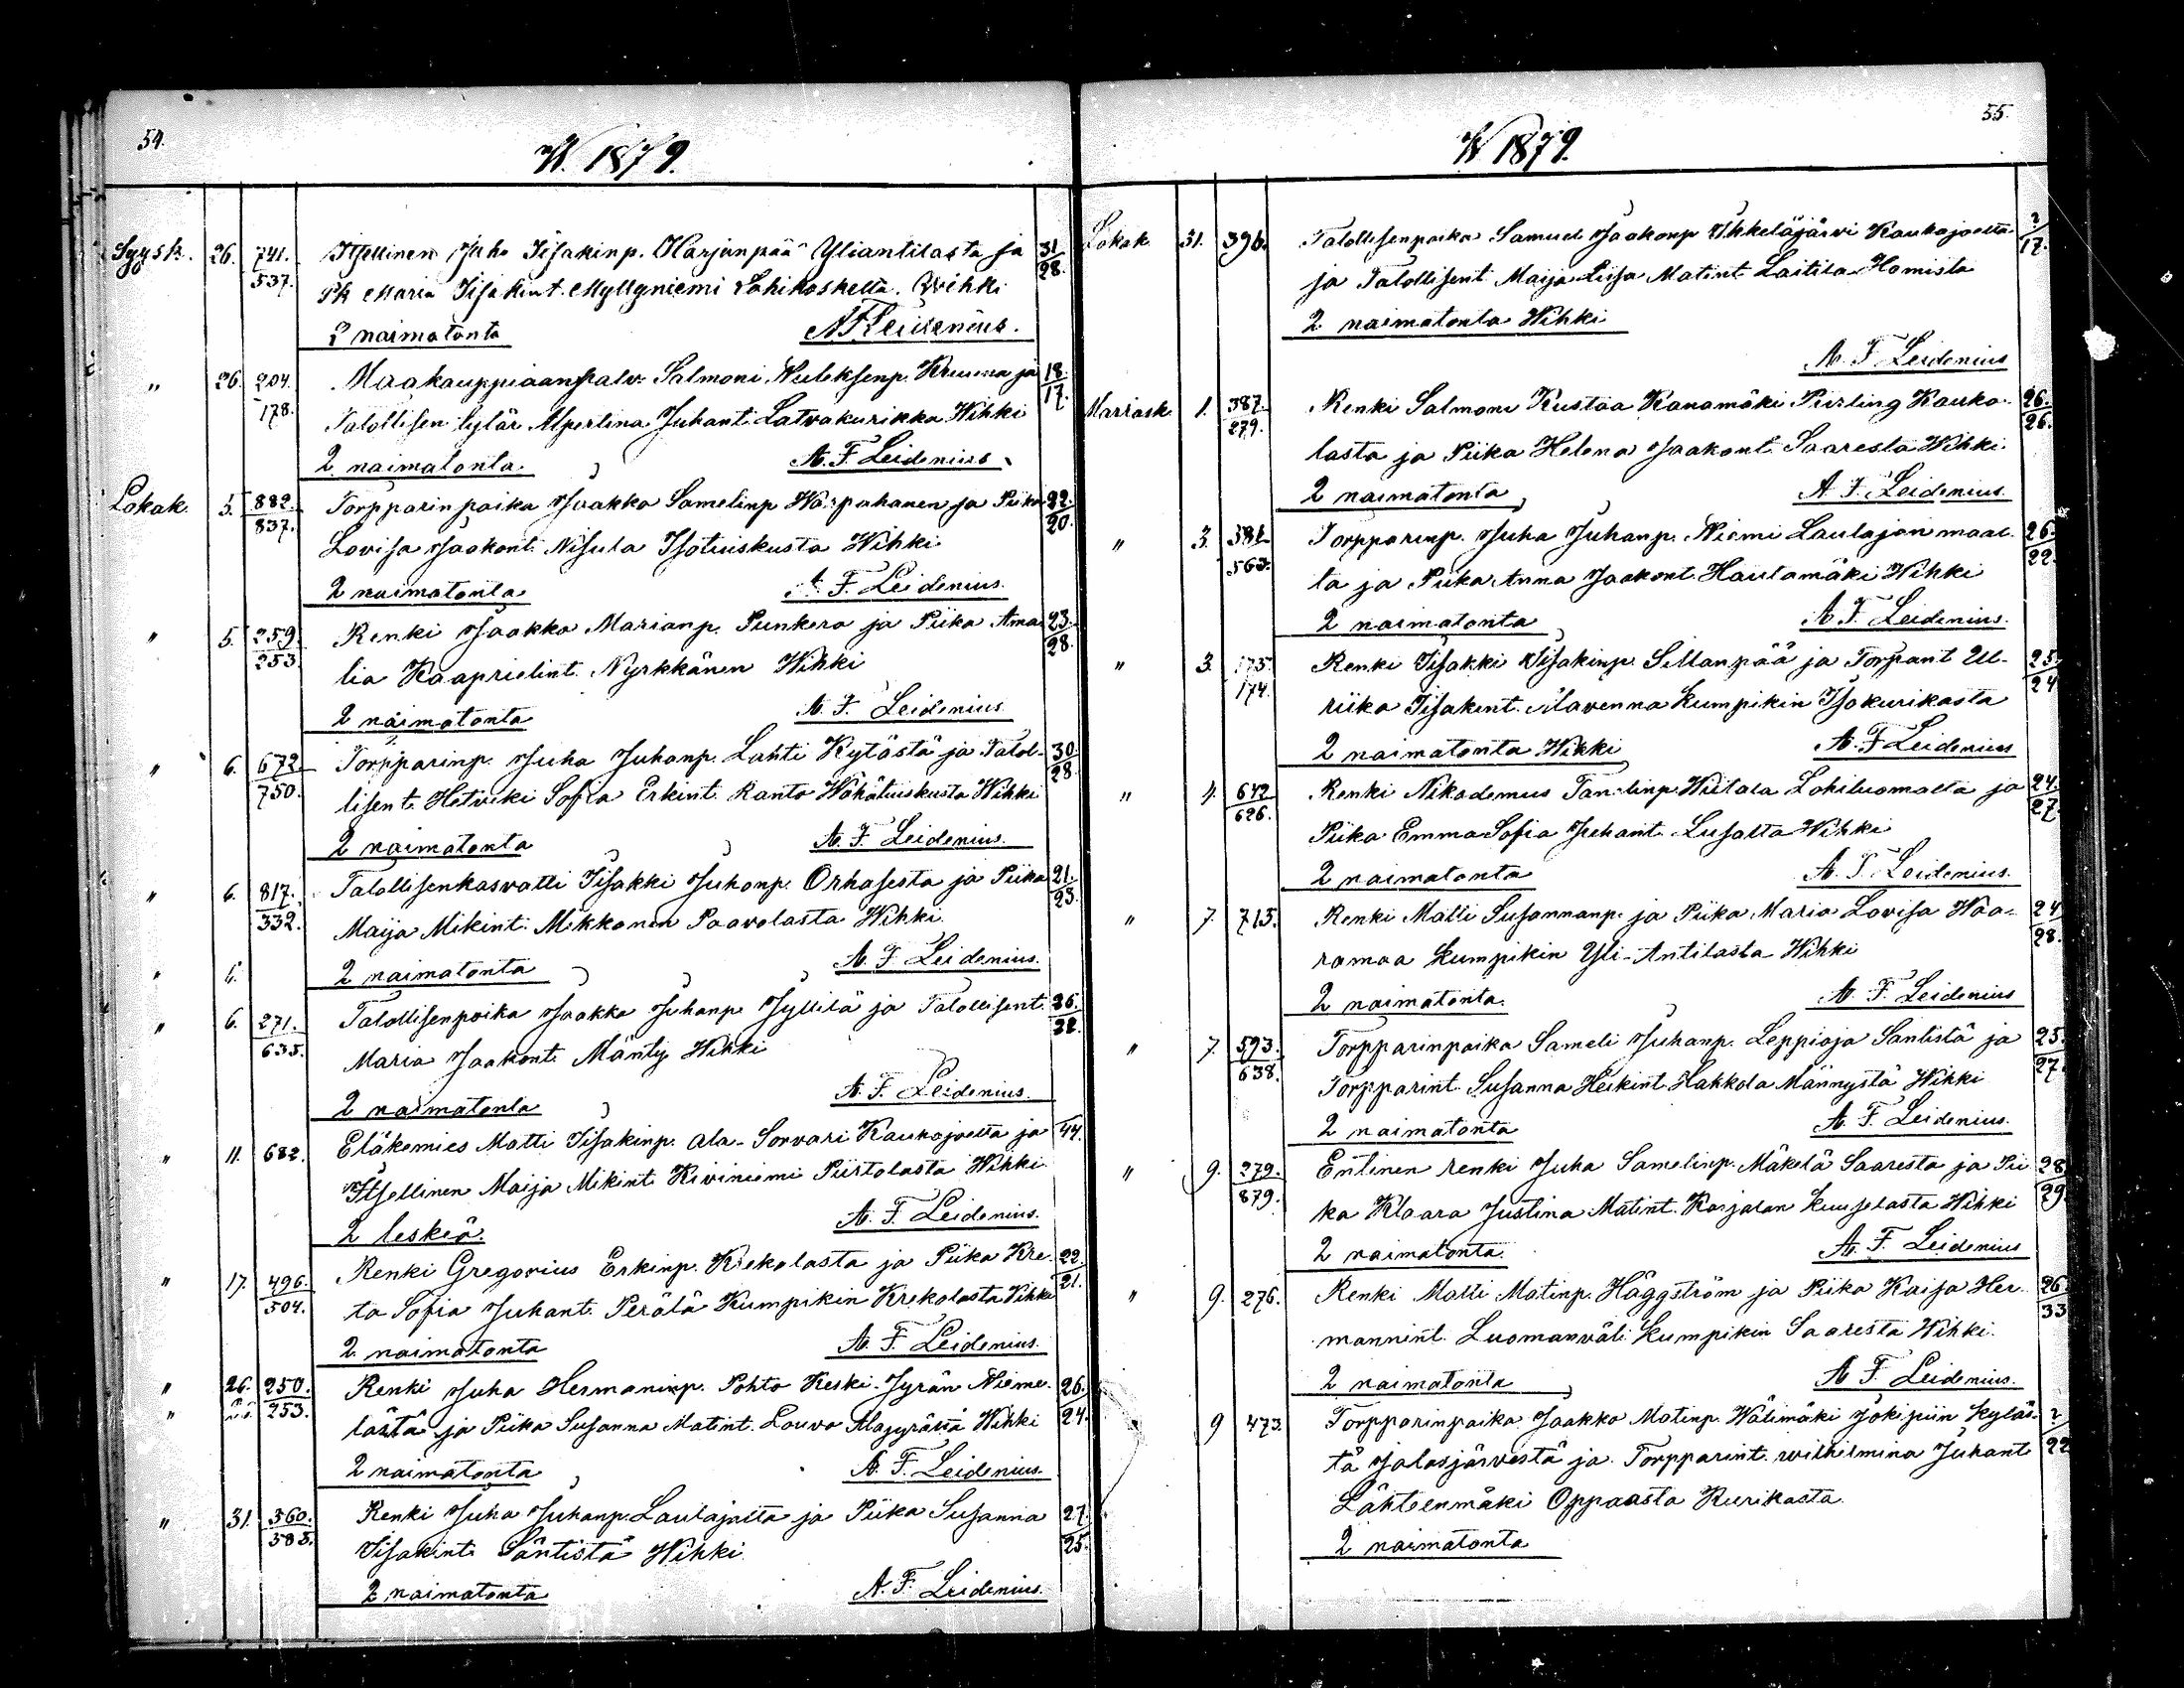 54.
W. 1879.
Syysk. 26. 741. Itsellinen Juho Iisakinp. Harjunpää Yliantilasta ja 31
537. Pk Maria Iisakint. Myllyniemi Lohikoskelta. Wihki 28.
2 naimatonta A F Leidenius.
" 26. 204. Maakauppiaanpalv. Salmoni Kruuna ja 18.
178. Talollisen tytär Alpertina Juhant. Latvakurikka Wihki 17.
2 naimatonta. A. F. Leidenius
Lokak. 5. 882. Torpparinpoika Jaakko Samelinp Warpahanen ja Piika 22.
837. Lovisa Jaakont. Nisula Isotuiskusta Wihki 20.
2 naimatonta A. F. Leidenius.
" 5. 259. Renki Jaakko Marianp. Punkera ja Piika Ama- 23.
253 lia Kaaprielint. Nyrkkänen Wihki 28.
2 naimatonta A. F. Leidenius
" 6. 672. Torpparinp. Juha Juhanp. Lahti Kytästä ja Talol- 30.
750. lisent. Hetviki Sofia Erkint. Ranto Wähätuiskusta Wihki 28.
2 naimatonta A. F. Leidenius.
" 6. 817. Talollisenkasvatti Iisakki Juhanp. Orhasesta ja Piika 21.
332. Maija Mikint. Mikkonen Paavolasta Wihki 23.
" 6. 2 naimatonta A. F. Leidenius.
" 6. 271. Talollisenpoika Jaakko Juhanp. Jyllilä ja Talollisent. 36.
635. Maria Jaakont. Mänty Wihki 32.
2 naimatonta A. F. Leidenius.
" 11. 682. Eläkemies Matti Iisakinp. Ala-Sorvari Kauhajoelta ja 44.
Itsellinen Maija Mikint. Kiviniemi Piirtolasta Wihki
2 leskeä. A. F. Leidenius.
" 17. 496. Renki Gregorius Erkinp. Krekolasta ja Piika Kre- 22.
504. ta Sofia Juhant. Perälä Kumpikin Krekolasta Wihki 21.
2 naimatonta A. F. Leidenius.
" 26. 250. Renki Juha Hermaninp. Pohto Keski-Jyrän Nieme- 26.
" 253. lästä ja Piika Susanna Matint. Louvo Alajyrästä Wihki 24.
2 naimatonta A. F. Leidenius.
" 31. 360. Renki Juha Juhanp. Laulajalta ja Piika Susanna 27.
585. Iisakint. Säntistä Wihki 25.
2 naimatonta A. F. Leidenius.
55.
W 1879.
Lokak. 31. 396. Talollisenpoika Samueli Jaakonp Ikkeläjärvi Kauhajoelta ?
ja Talollisent. Maija Liisa Matint. Laitila Homista 17.
2 naimatonta Wihki
A. F. Leidenius
Marrask. 1. 387. Renki Salmoni Kustaa Kanamäki Kauko- 26.
279. lasta ja Piika Helena Jaakont. Saaresta Wihki 26.
2 naimatonta A. F. Leidenius.
" 3. Torpparinp. Juha Juhanp. Niemi Laulajan maal- 26.
563. ta ja Piika Anna Jaakont. Hautamäki Wihki 22.
2 naimatonta A. F. Leidenius.
" 3. 175. Renki Iisakki Iisakinp. Sillanpää ja Torpant Ul- 25.
174. riika Iisakint. Kumpikin Isokurikasta 24
2 naimatonta Wihki A. F. Leidenius
" 4. 672 Renki Nikodemus Wiitala Lohiluomalta ja 24.
626. Piika Emma Sofia Juhant. Lusalta Wihki 27.
2 naimatonta A. F. Leidenius.
" 7. 715. Renki Matti Susannanp. ja Piika Maria Lovisa Waa- 24
ramaa Kumpikin Yli-Antilasta Wihki 28.
2 naimatonta. A. F. Leidenius
" 7. 593. Torpparinpoika Sameli Juhanp. Leppioja Säntistä ja 25.
638. Torpparint. Susanna Heikint. Hakkola Männystä Wihki 27.
2 naimatonta A. F. Leidenius.
" 9. 279. Entinen renki Juha Samelinp. Mäkelä Saaresta ja Pii 28
879. ka Klaara Justina Matint. Karjalan Kuuselasta Wihki 29
2 naimatonta. A. F. Leidenius
" 9. 276. Renki Matti Matinp. Häggström ja Piika Kaisa Her- 26
mannint. Luomanväli Kumpikin Saaresta Wihki. 33
2 naimatonta A. F. Leidenius.
9 473. Torpparinpoika Jaakko Matinp. Wälimäki Jokipiin kyläs- ?
tä Jalasjärvestä ja Torpparint. wilhelmina Juhant 22
Lähteenmäki Oppaasta Kurikasta.
2 naimatonta